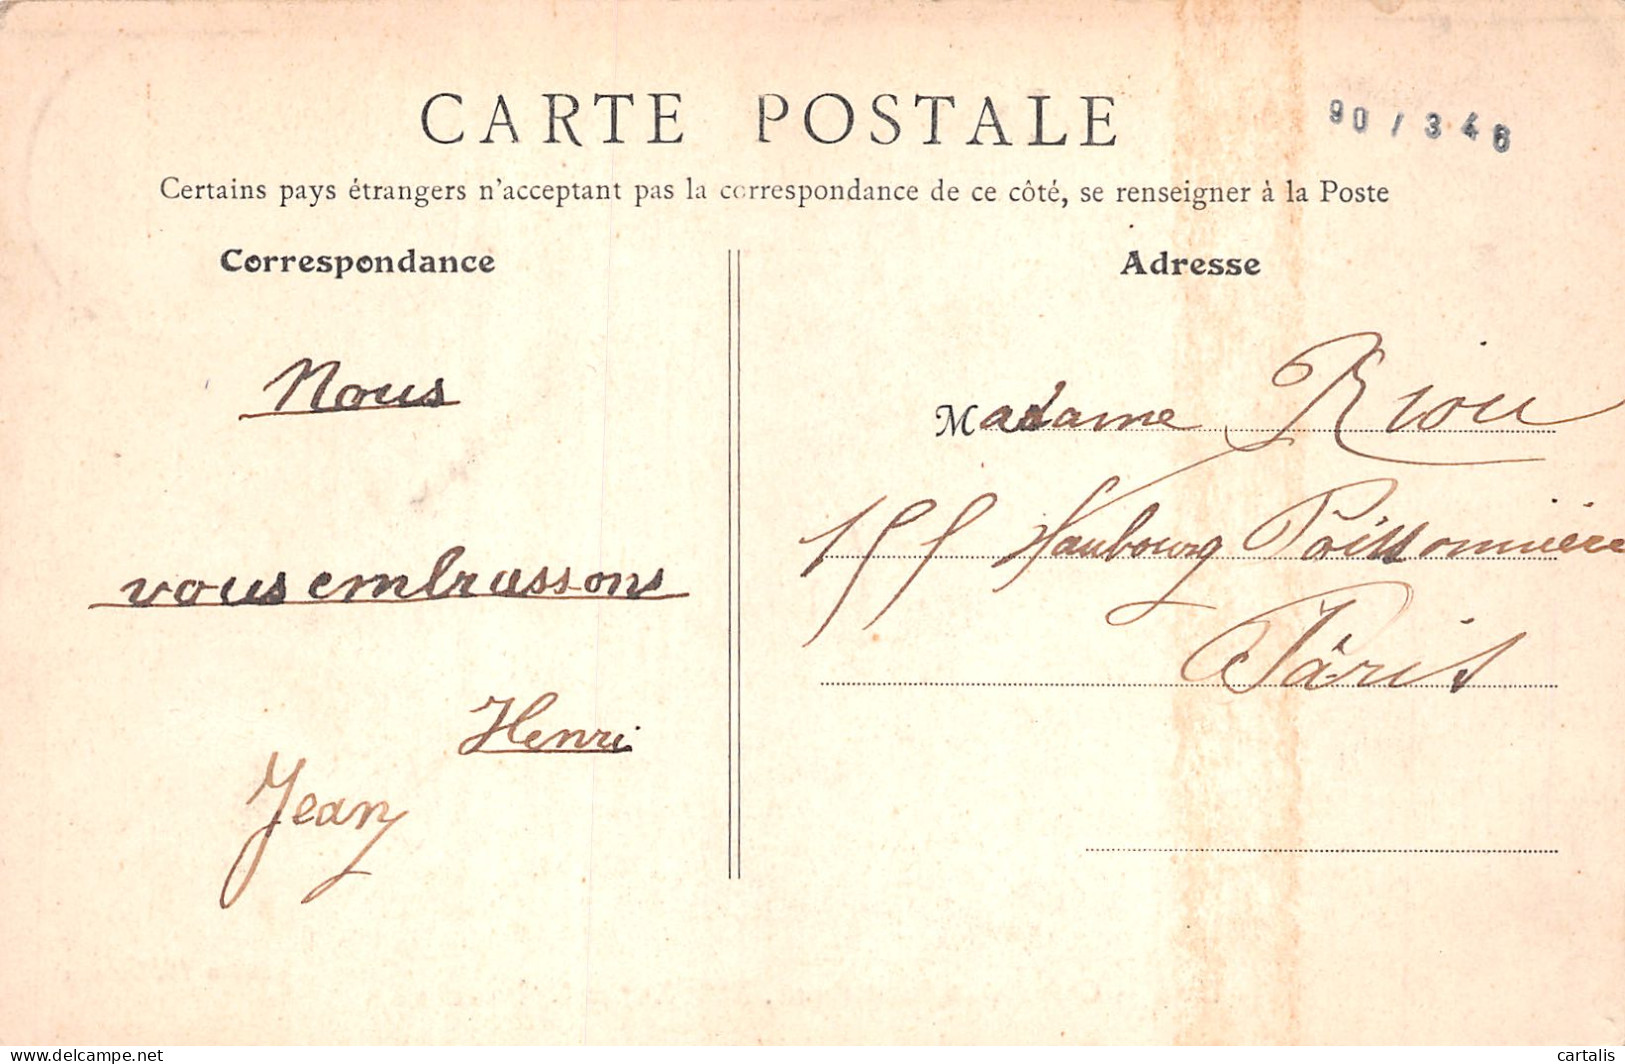 CARTE POSTALE
90 / 346
Certains pays étrangers n'acceptant pas la correspondance de ce côté, se renseigner à la Poste
Correspondance
Nous
vous embrassons
Henri
Jean
Adresse
Madame Riou
155 Faubourg Poissonnière
Paris
delcampe.net
cartalis